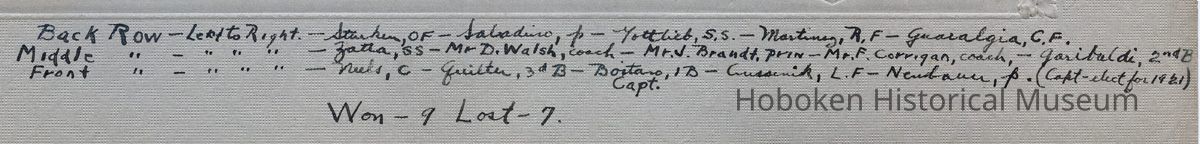 Back Row – Left to Right. – Starken, OF – Salvadino, p – Gottlieb, S.S. – Martinez, R.F – Guaralgia, C.F.
Middle " – " " " – Zatta, SS – Mr D. Walsh, coach – Mr. J. Brandt, prin – Mr. F. Corrigan, coach, – Garibaldi, 2nd B
Front " – " " " – C – Quilter, 3d B – Bostano, 1B – L.F – Neubauer, p. (Capt-elect for 1921)
Capt.
Hoboken Historical Museum
Won – 9 Lost – 7.